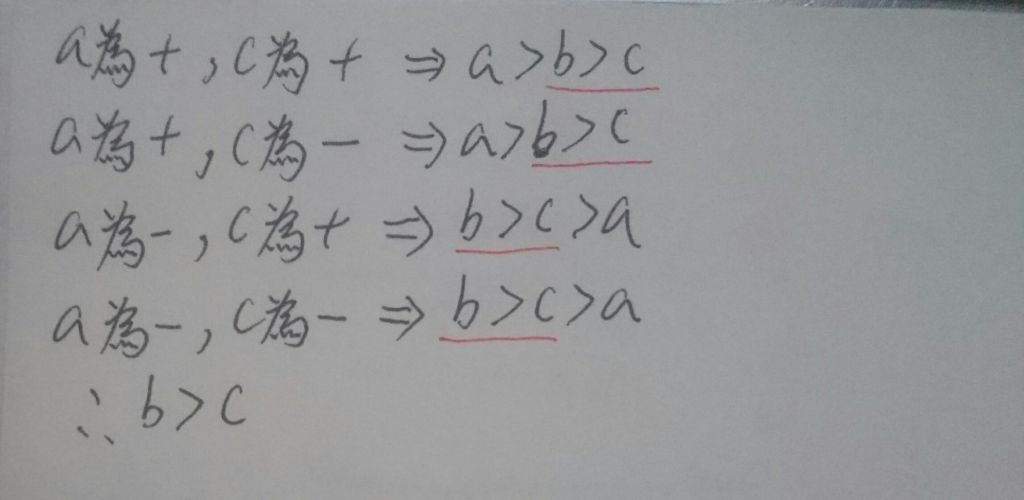 a為+,c為+ ⇒ a>b>c
a為+,c為- ⇒ a>b>c
a為-,c為+ ⇒ b>c>a
a為-,c為- ⇒ b>c>a
∴ b>c